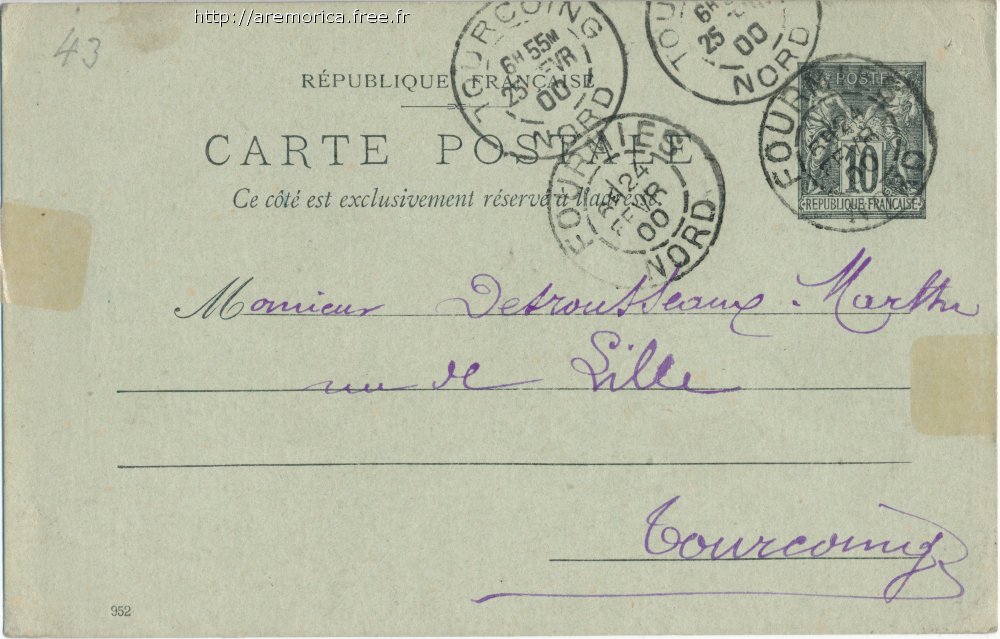 http://aremorica.free.fr
43
TOURCOING
6H 55M
25 FEVR
00
NORD
TOU
6H
25
00
NORD
RÉPUBLIQUE FRANÇAISE
CARTE POSTALE
Ce côté est exclusivement réservé à l'adresse
FOURMIES
24
FEVR
00
NORD
FOURM
POSTE
10
REPUBLIQUE FRANÇAISE
Monsieur Desrousseaux-Marthe
rue de Lille
Tourcoing
952